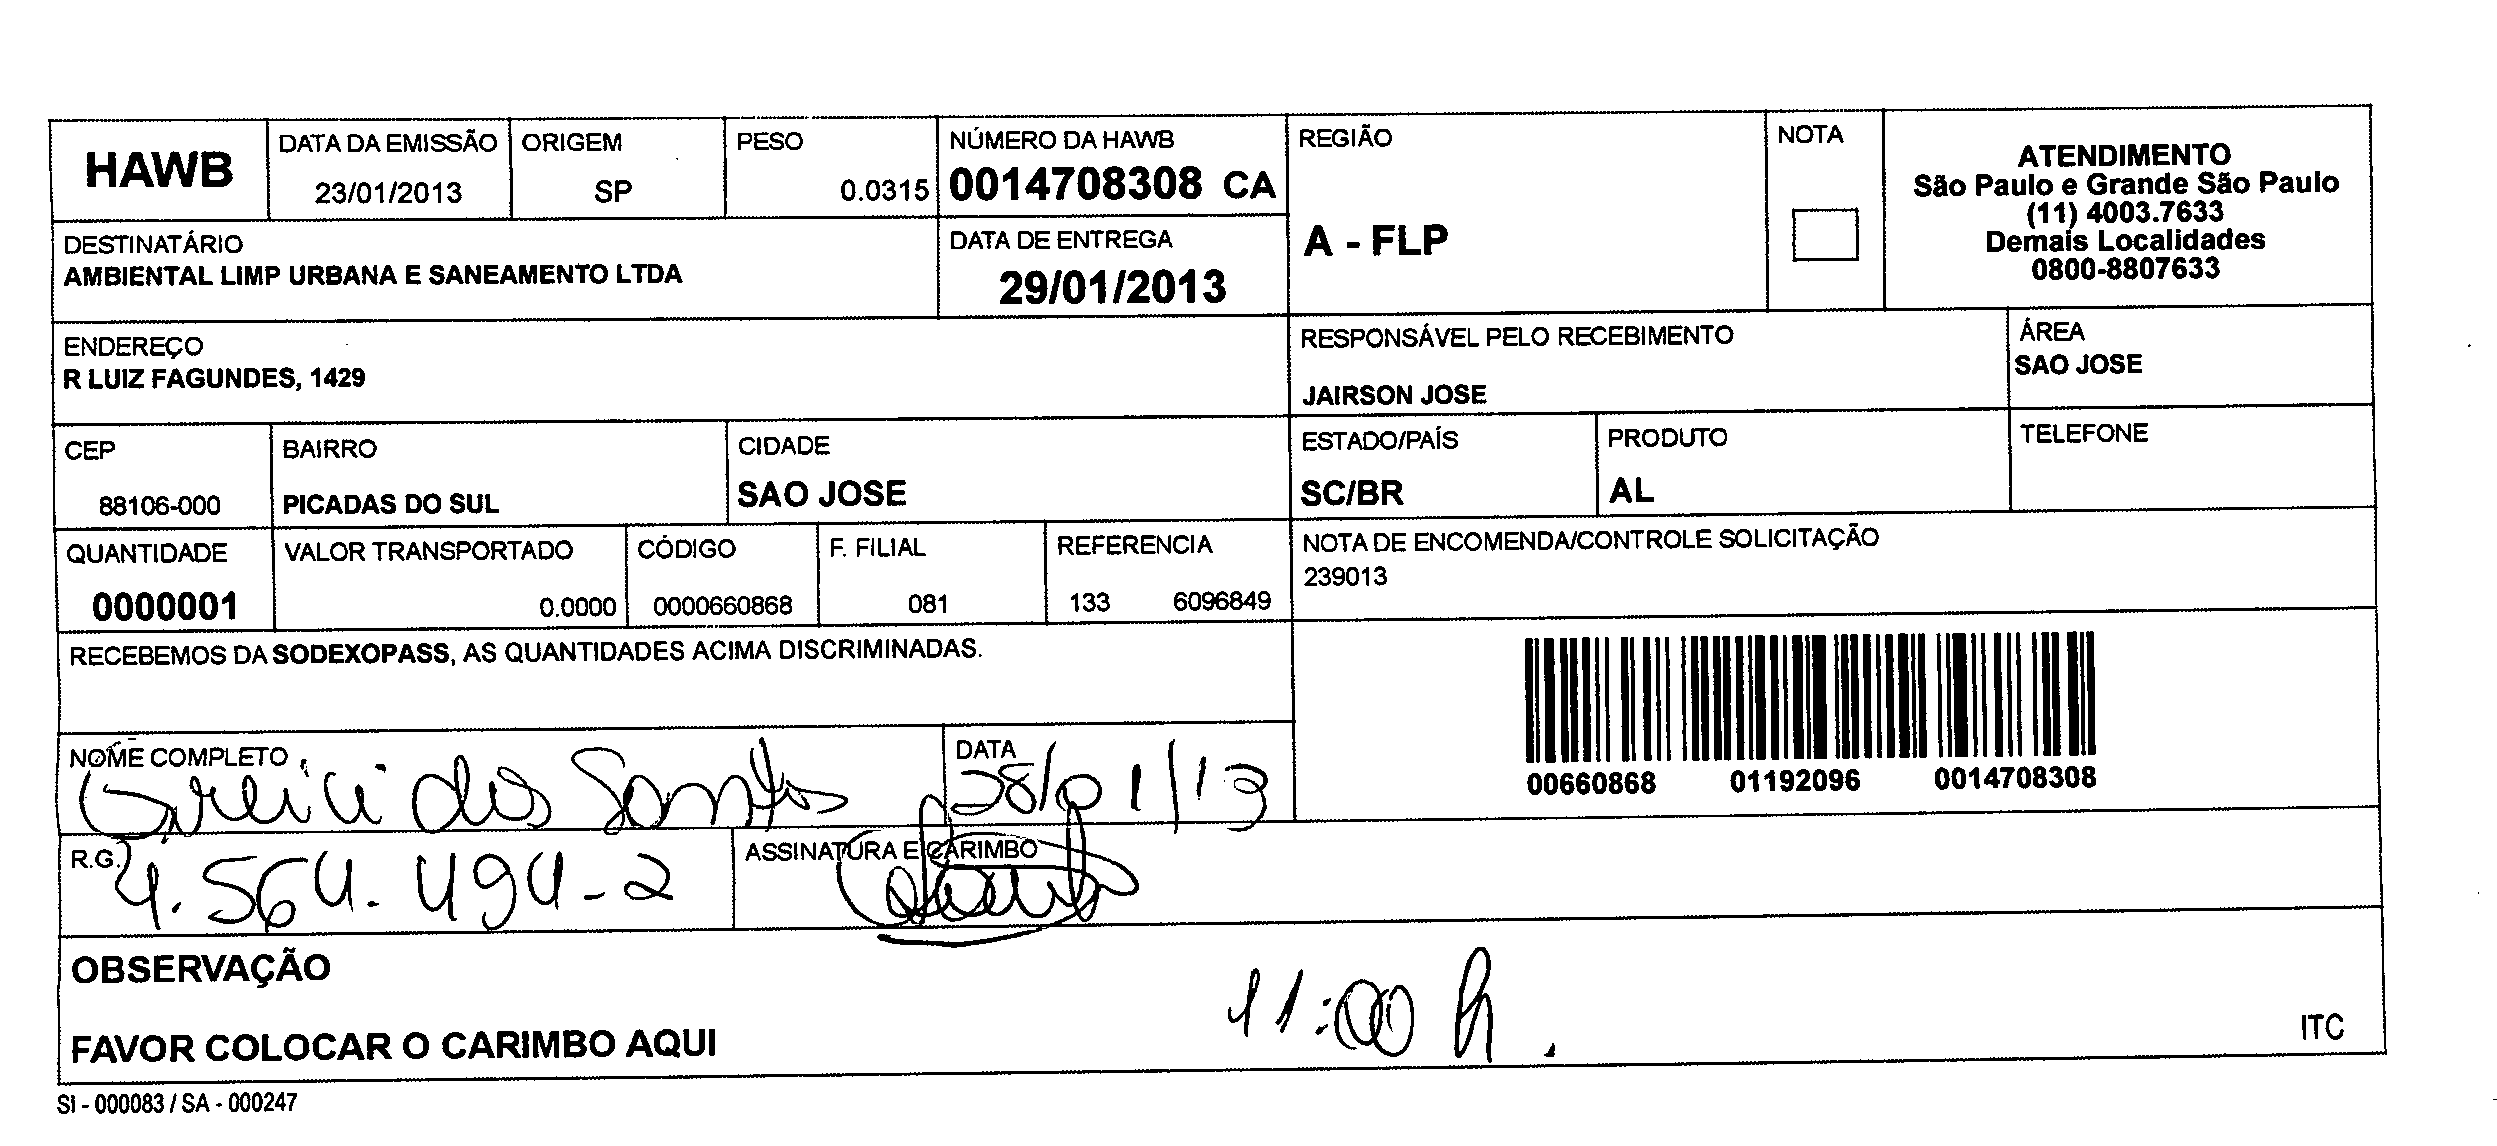 HAWB
DATA DA EMISSÃO
23/01/2013
ORIGEM
SP
PESO
0.0315
NÚMERO DA HAWB
0014708308 CA
REGIÃO
A - FLP
NOTA
ATENDIMENTO
São Paulo e Grande São Paulo
(11) 4003.7633
Demais Localidades
0800-8807633
DESTINATÁRIO
AMBIENTAL LIMP URBANA E SANEAMENTO LTDA
DATA DE ENTREGA
29/01/2013
ENDEREÇO
R LUIZ FAGUNDES, 1429
RESPONSÁVEL PELO RECEBIMENTO
JAIRSON JOSE
ÁREA
SAO JOSE
CEP
88106-000
BAIRRO
PICADAS DO SUL
CIDADE
SAO JOSE
ESTADO/PAÍS
SC/BR
PRODUTO
AL
TELEFONE
QUANTIDADE
0000001
VALOR TRANSPORTADO
0.0000
CÓDIGO
0000660868
F. FILIAL
081
REFERENCIA
133 6096849
NOTA DE ENCOMENDA/CONTROLE SOLICITAÇÃO
239013
RECEBEMOS DA SODEXOPASS, AS QUANTIDADES ACIMA DISCRIMINADAS.
00660868 01192096 0014708308
NOME COMPLETO
dos Santos
DATA
28/01/13
R.G.
4.564.494-2
ASSINATURA E CARIMBO
OBSERVAÇÃO
11:00 h.
FAVOR COLOCAR O CARIMBO AQUI
ITC
SI - 000083 / SA - 000247